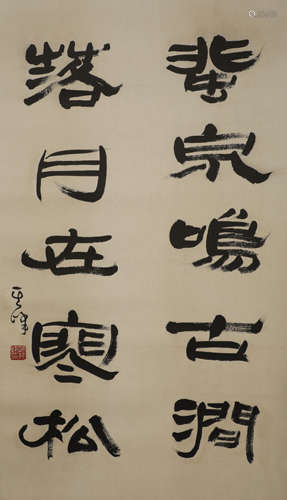 飛泉鳴古澗
落月在寒松
其峰